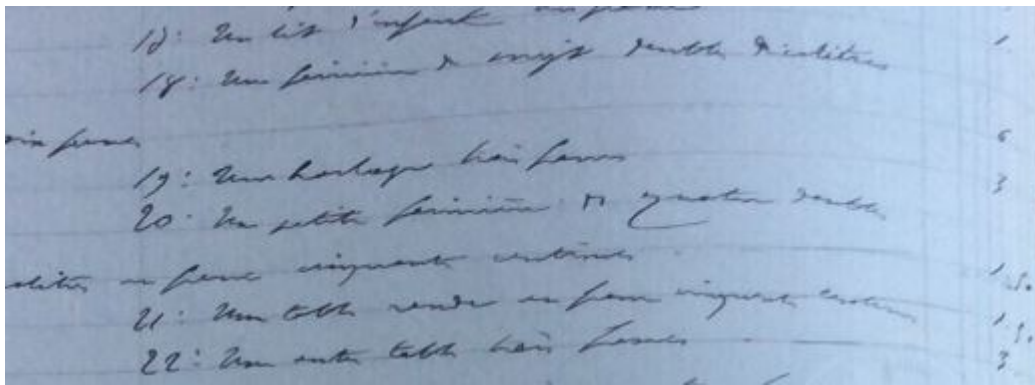 17: Un lit d'enfant un franc 1.
18: Une farinière de vingt doubles décalitres
six francs 6.
19: Une horloge trois francs 3
20. Une petite farinière de quatre doubles
décalitres un franc cinquante centimes 1.50
21: Une table ronde un franc cinquante centimes 1.50
22: Une autre table trois francs 3